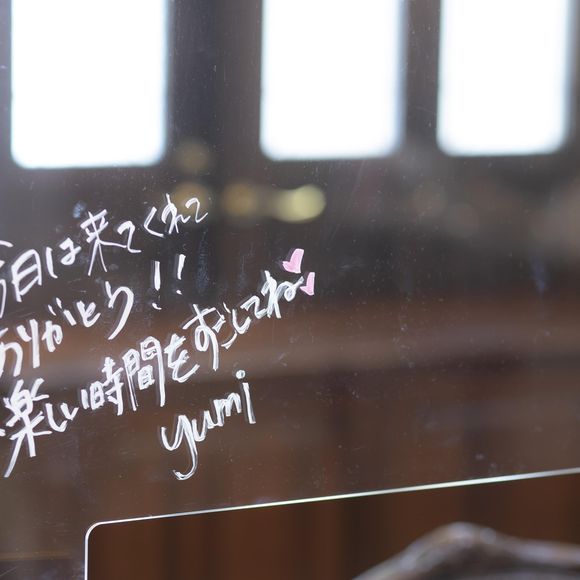 今日は来てくれて
ありがとう!!
楽しい時間をすごしてね
yumi